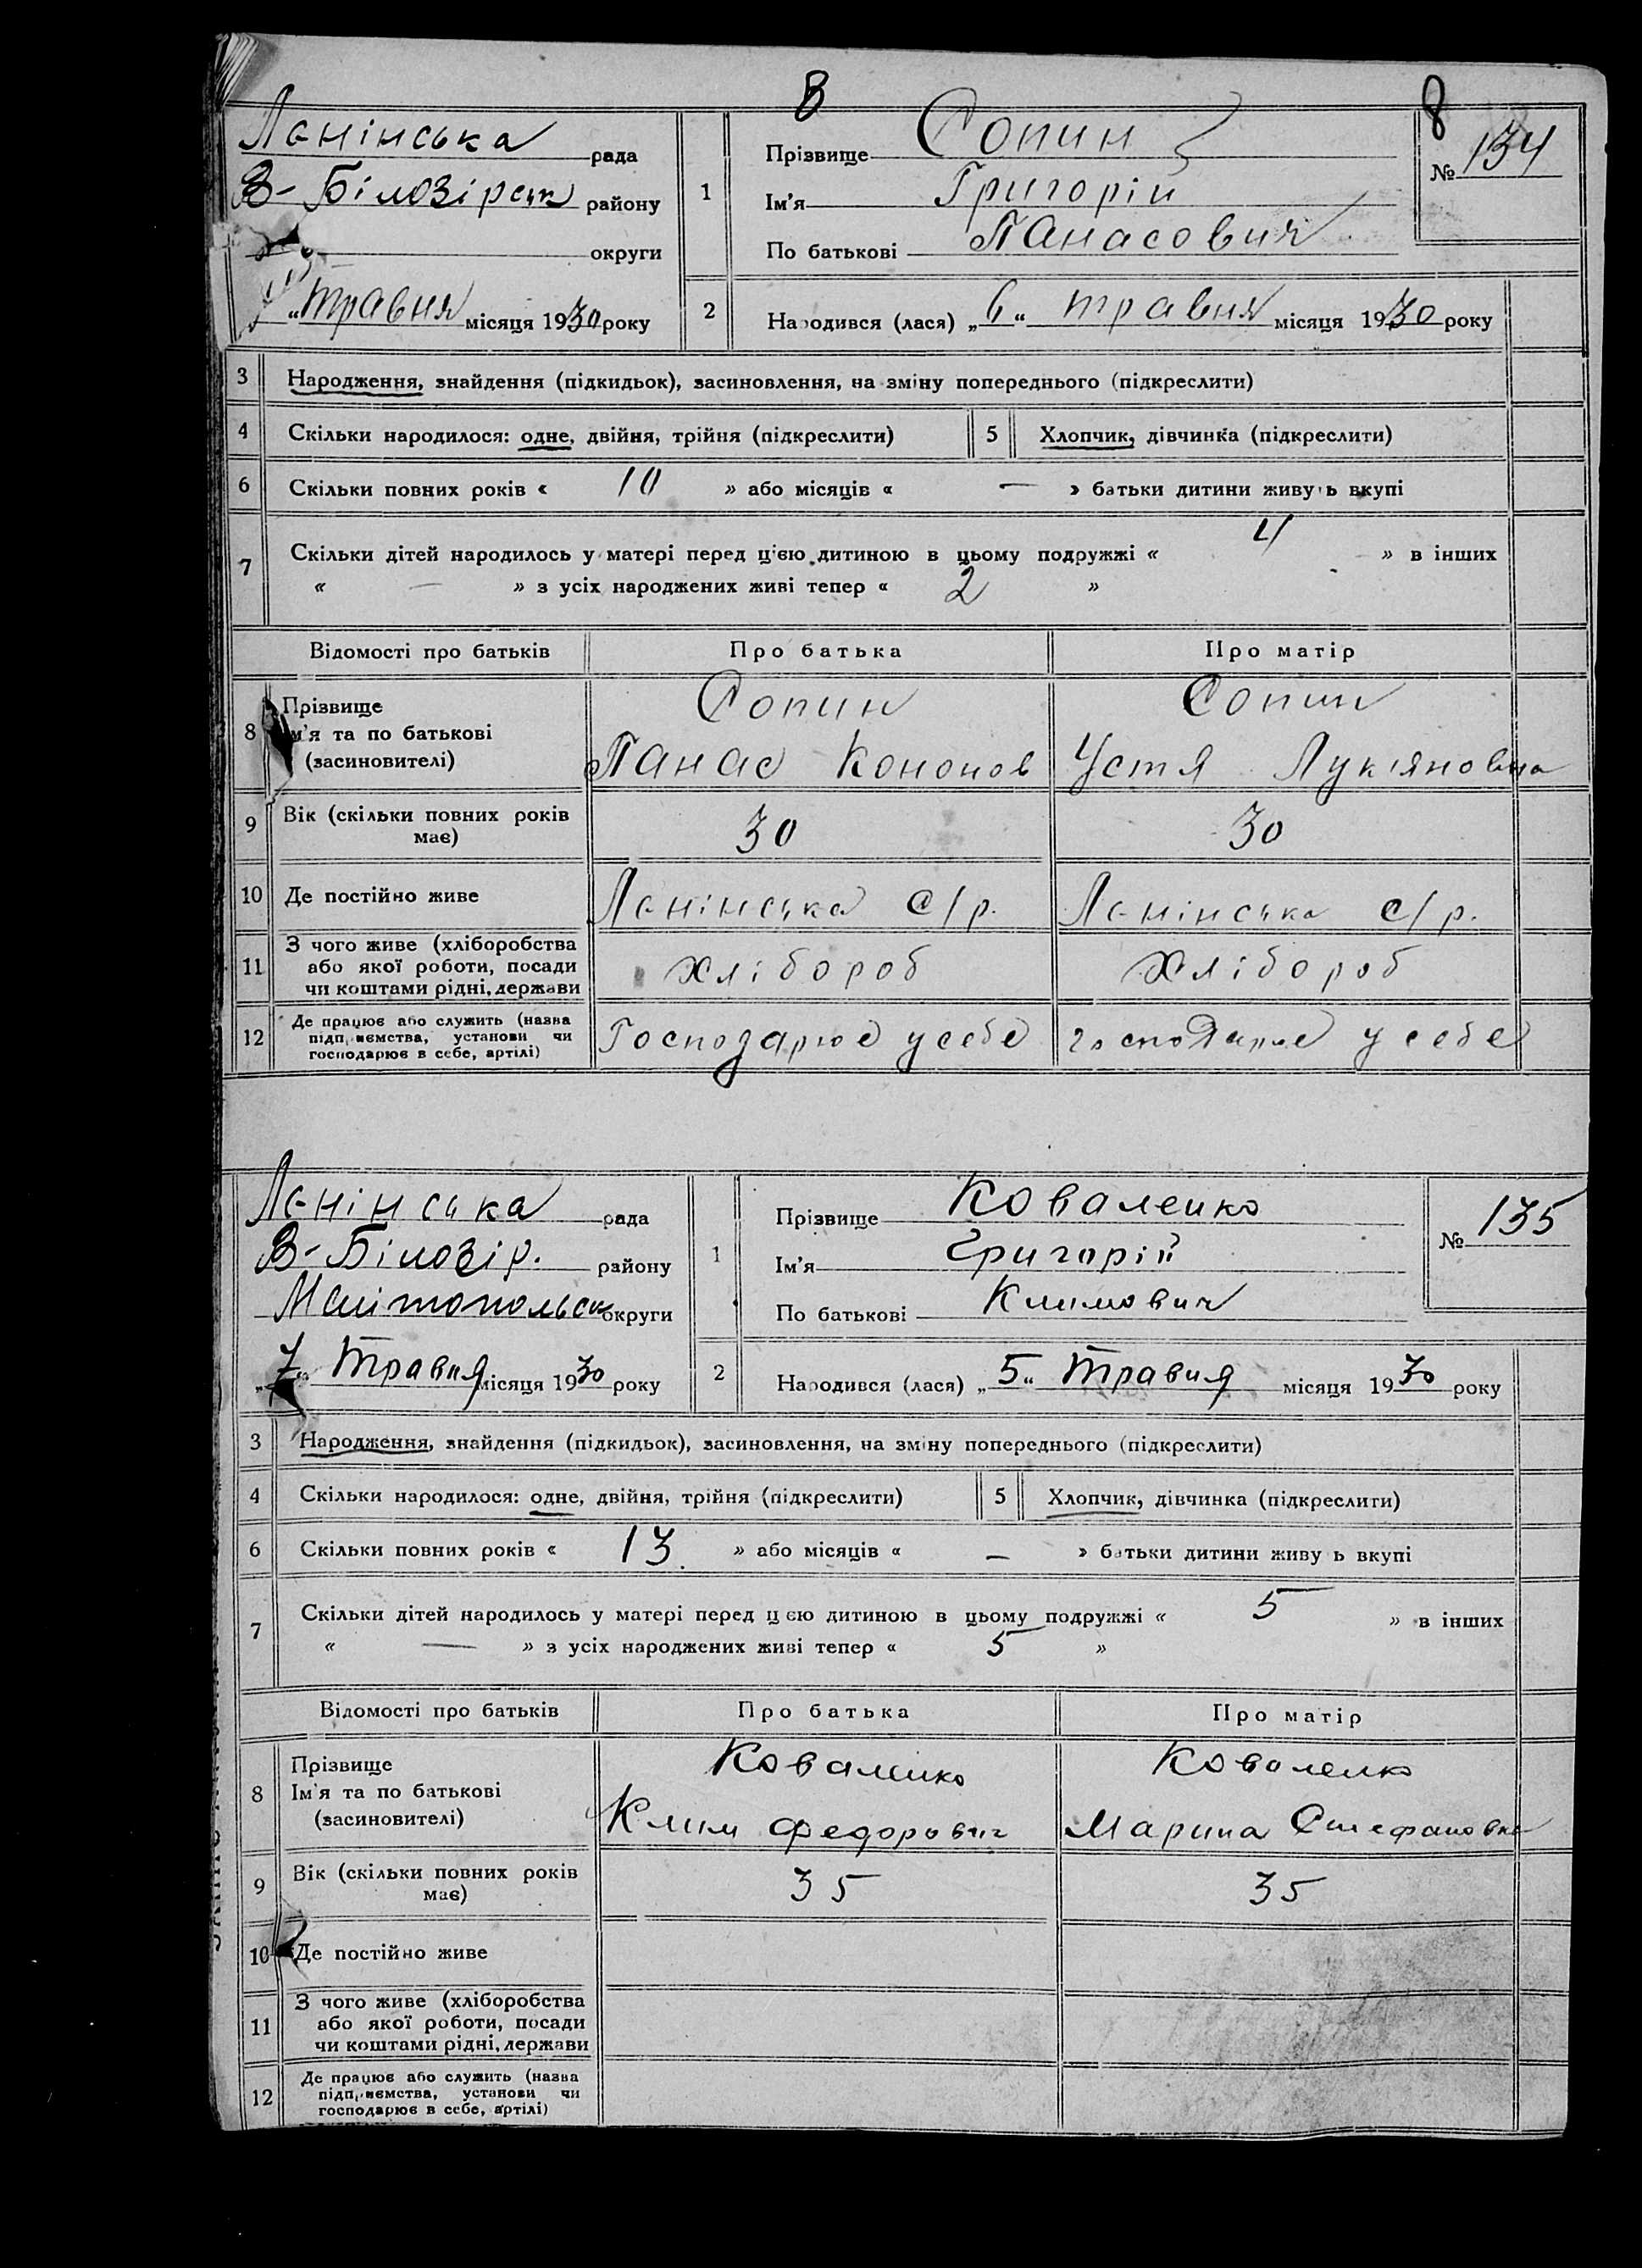 8 8
Ленінська рада
В-Білозірськ району
округи
7 „ Травня місяця 1930 року
1
Прізвище Сопин
Ім'я Григорій
По батькові Панасович
№ 134
2 Народився (лася) „6“ травня місяця 1930 року
3 Народження, знайдення (підкидьок), засиновлення, на зміну попереднього (підкреслити)
4 Скільки народилося: одне, двійня, трійня (підкреслити) 5 Хлопчик, дівчинка (підкреслити)
6 Скільки повних років « 10 » або місяців « — » батьки дитини живуть вкупі
7 Скільки дітей народилось у матері перед цією дитиною в цьому подружжі « 4 » в інших
« — » з усіх народжених живі тепер « 2 »
Відомості про батьків Про батька Про матір
8 Прізвище Сопин Сопин
Ім'я та по батькові Панас Кононов Устя Лук'яновна
(засиновителі)
9 Вік (скільки повних років має) 30 30
10 Де постійно живе Ленінська с/р. Ленінська с/р.
11 З чого живе (хліборобства
або якої роботи, посади
чи коштами рідні, держави хлібороб хлібороб
12 Де працює або служить (назва
підприємства, установи чи
господарює в себе, артілі) Господарює у себе господарює у себе
Ленінська рада
В-Білозір. району
Мелітопольськ округи
„7“ Травня місяця 1930 року
1
Прізвище Коваленко
Ім'я Григорій
По батькові Климович
№ 135
2 Народився (лася) „5“ Травня місяця 1930 року
3 Народження, знайдення (підкидьок), засиновлення, на зміну попереднього (підкреслити)
4 Скільки народилося: одне, двійня, трійня (підкреслити) 5 Хлопчик, дівчинка (підкреслити)
6 Скільки повних років « 13. » або місяців « — » батьки дитини живуть вкупі
7 Скільки дітей народилось у матері перед цією дитиною в цьому подружжі « 5 » в інших
« — » з усіх народжених живі тепер « 5 »
Відомості про батьків Про батька Про матір
8 Прізвище Коваленко Коваленко
Ім'я та по батькові
(засиновителі) Клим Федорович Марина Стефановна
9 Вік (скільки повних років має) 35 35
10 Де постійно живе
11 З чого живе (хліборобства
або якої роботи, посади
чи коштами рідні, держави
12 Де працює або служить (назва
підприємства, установи чи
господарює в себе, артілі)